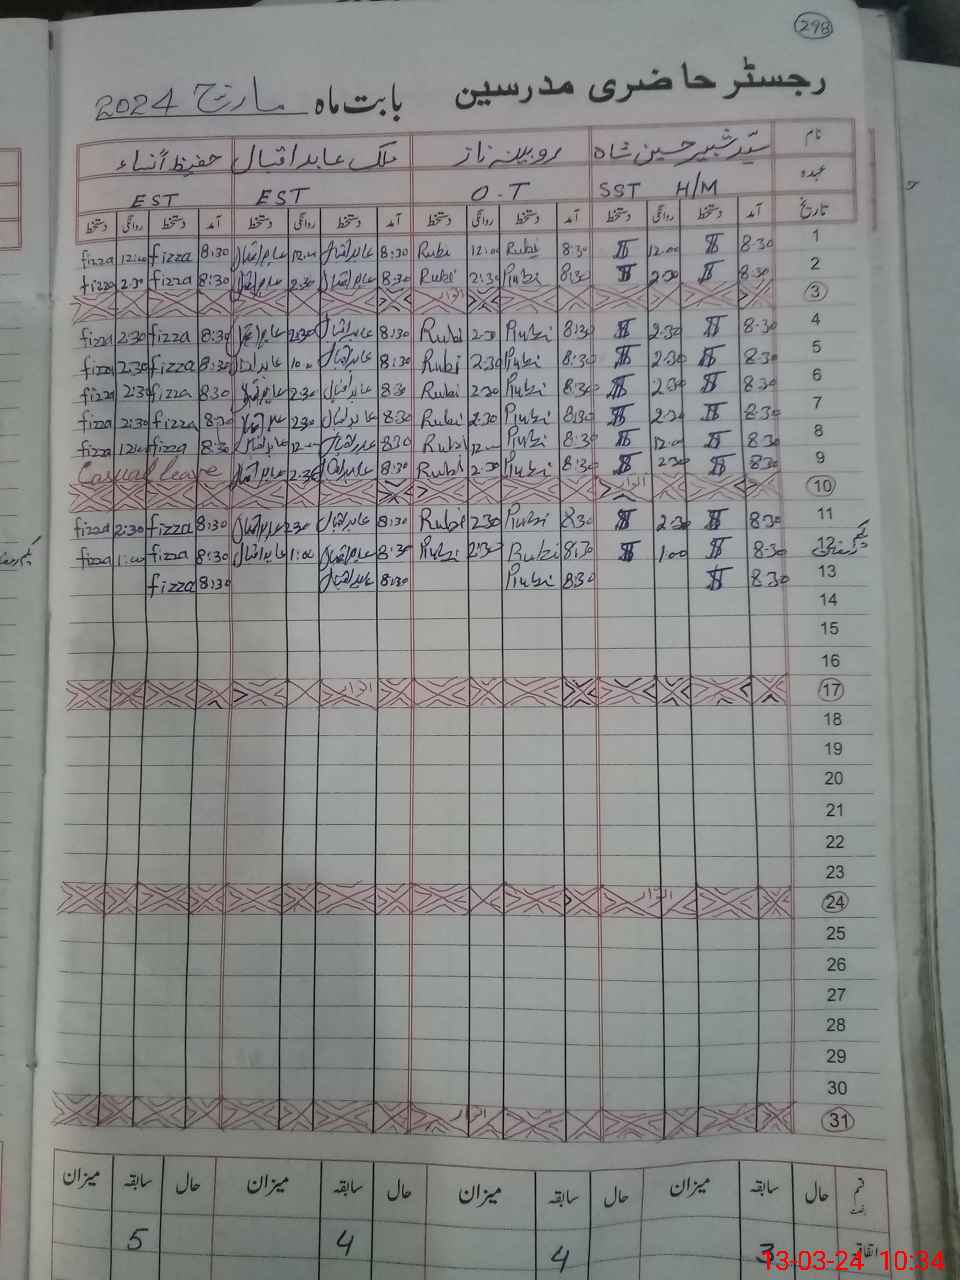 298
رجسٹر حاضری مدرسین بابت ماہ مارچ 2024
نام سید شبیر حسین شاہ روبینہ ناز ملک عابد اقبال
عہدہ SST H/M O.T EST EST
تاریخ آمد دستخط روانگی دستخط آمد دستخط روانگی دستخط آمد دستخط روانگی دستخط آمد دستخط روانگی دستخط
1 8:30 12:00 8:30 Rubi 12:00 Rubi 8:30 عابد اقبال 12:00 عابد اقبال 8:30 fizza 12:00 fizza
2 8:30 2:30 8:30 Rubi 2:30 Rubi 8:30 عابد اقبال 2:30 عابد اقبال 8:30 fizza 2:30 fizza
3 اتوار
4 8:30 2:30 8:30 Rubi 2:30 Rubi 8:30 عابد اقبال 2:30 عابد اقبال 8:30 fizza 2:30 fizza
5 8:30 2:30 8:30 Rubi 2:30 Rubi 8:30 عابد اقبال 10:00 عابد اقبال 8:30 fizza 2:30 fizza
6 8:30 2:30 8:30 Rubi 2:30 Rubi 8:30 عابد اقبال 2:30 عابد اقبال 8:30 fizza 2:30 fizza
7 8:30 2:30 8:30 Rubi 2:30 Rubi 8:30 عابد اقبال 2:30 عابد اقبال 8:30 fizza 2:30 fizza
8 8:30 12:00 8:30 Rubi 12:00 Rubi 8:30 عابد اقبال 12:00 عابد اقبال 8:30 fizza 12:00 fizza
9 8:30 2:30 8:30 Rubi 2:30 Rubi 8:30 عابد اقبال 2:30 عابد اقبال Casual leave
10 اتوار
11 8:30 2:30 8:30 Rubi 2:30 Rubi 8:30 عابد اقبال 2:30 عابد اقبال 8:30 fizza 2:30 fizza
12 8:30 1:00 8:30 Rubi 2:30 Rubi 8:30 عابد اقبال 1:00 عابد اقبال 8:30 fizza 1:00 fizza
13 8:30 8:30 Rubi 8:30 عابد اقبال 8:30 fizza
14
15
16
17 اتوار
18
19
20
21
22
23
24 اتوار
25
26
27
28
29
30
31 اتوار
حال سابقہ میزان حال سابقہ میزان حال سابقہ میزان حال سابقہ میزان
3 4 4 5
13-03-24 10:34